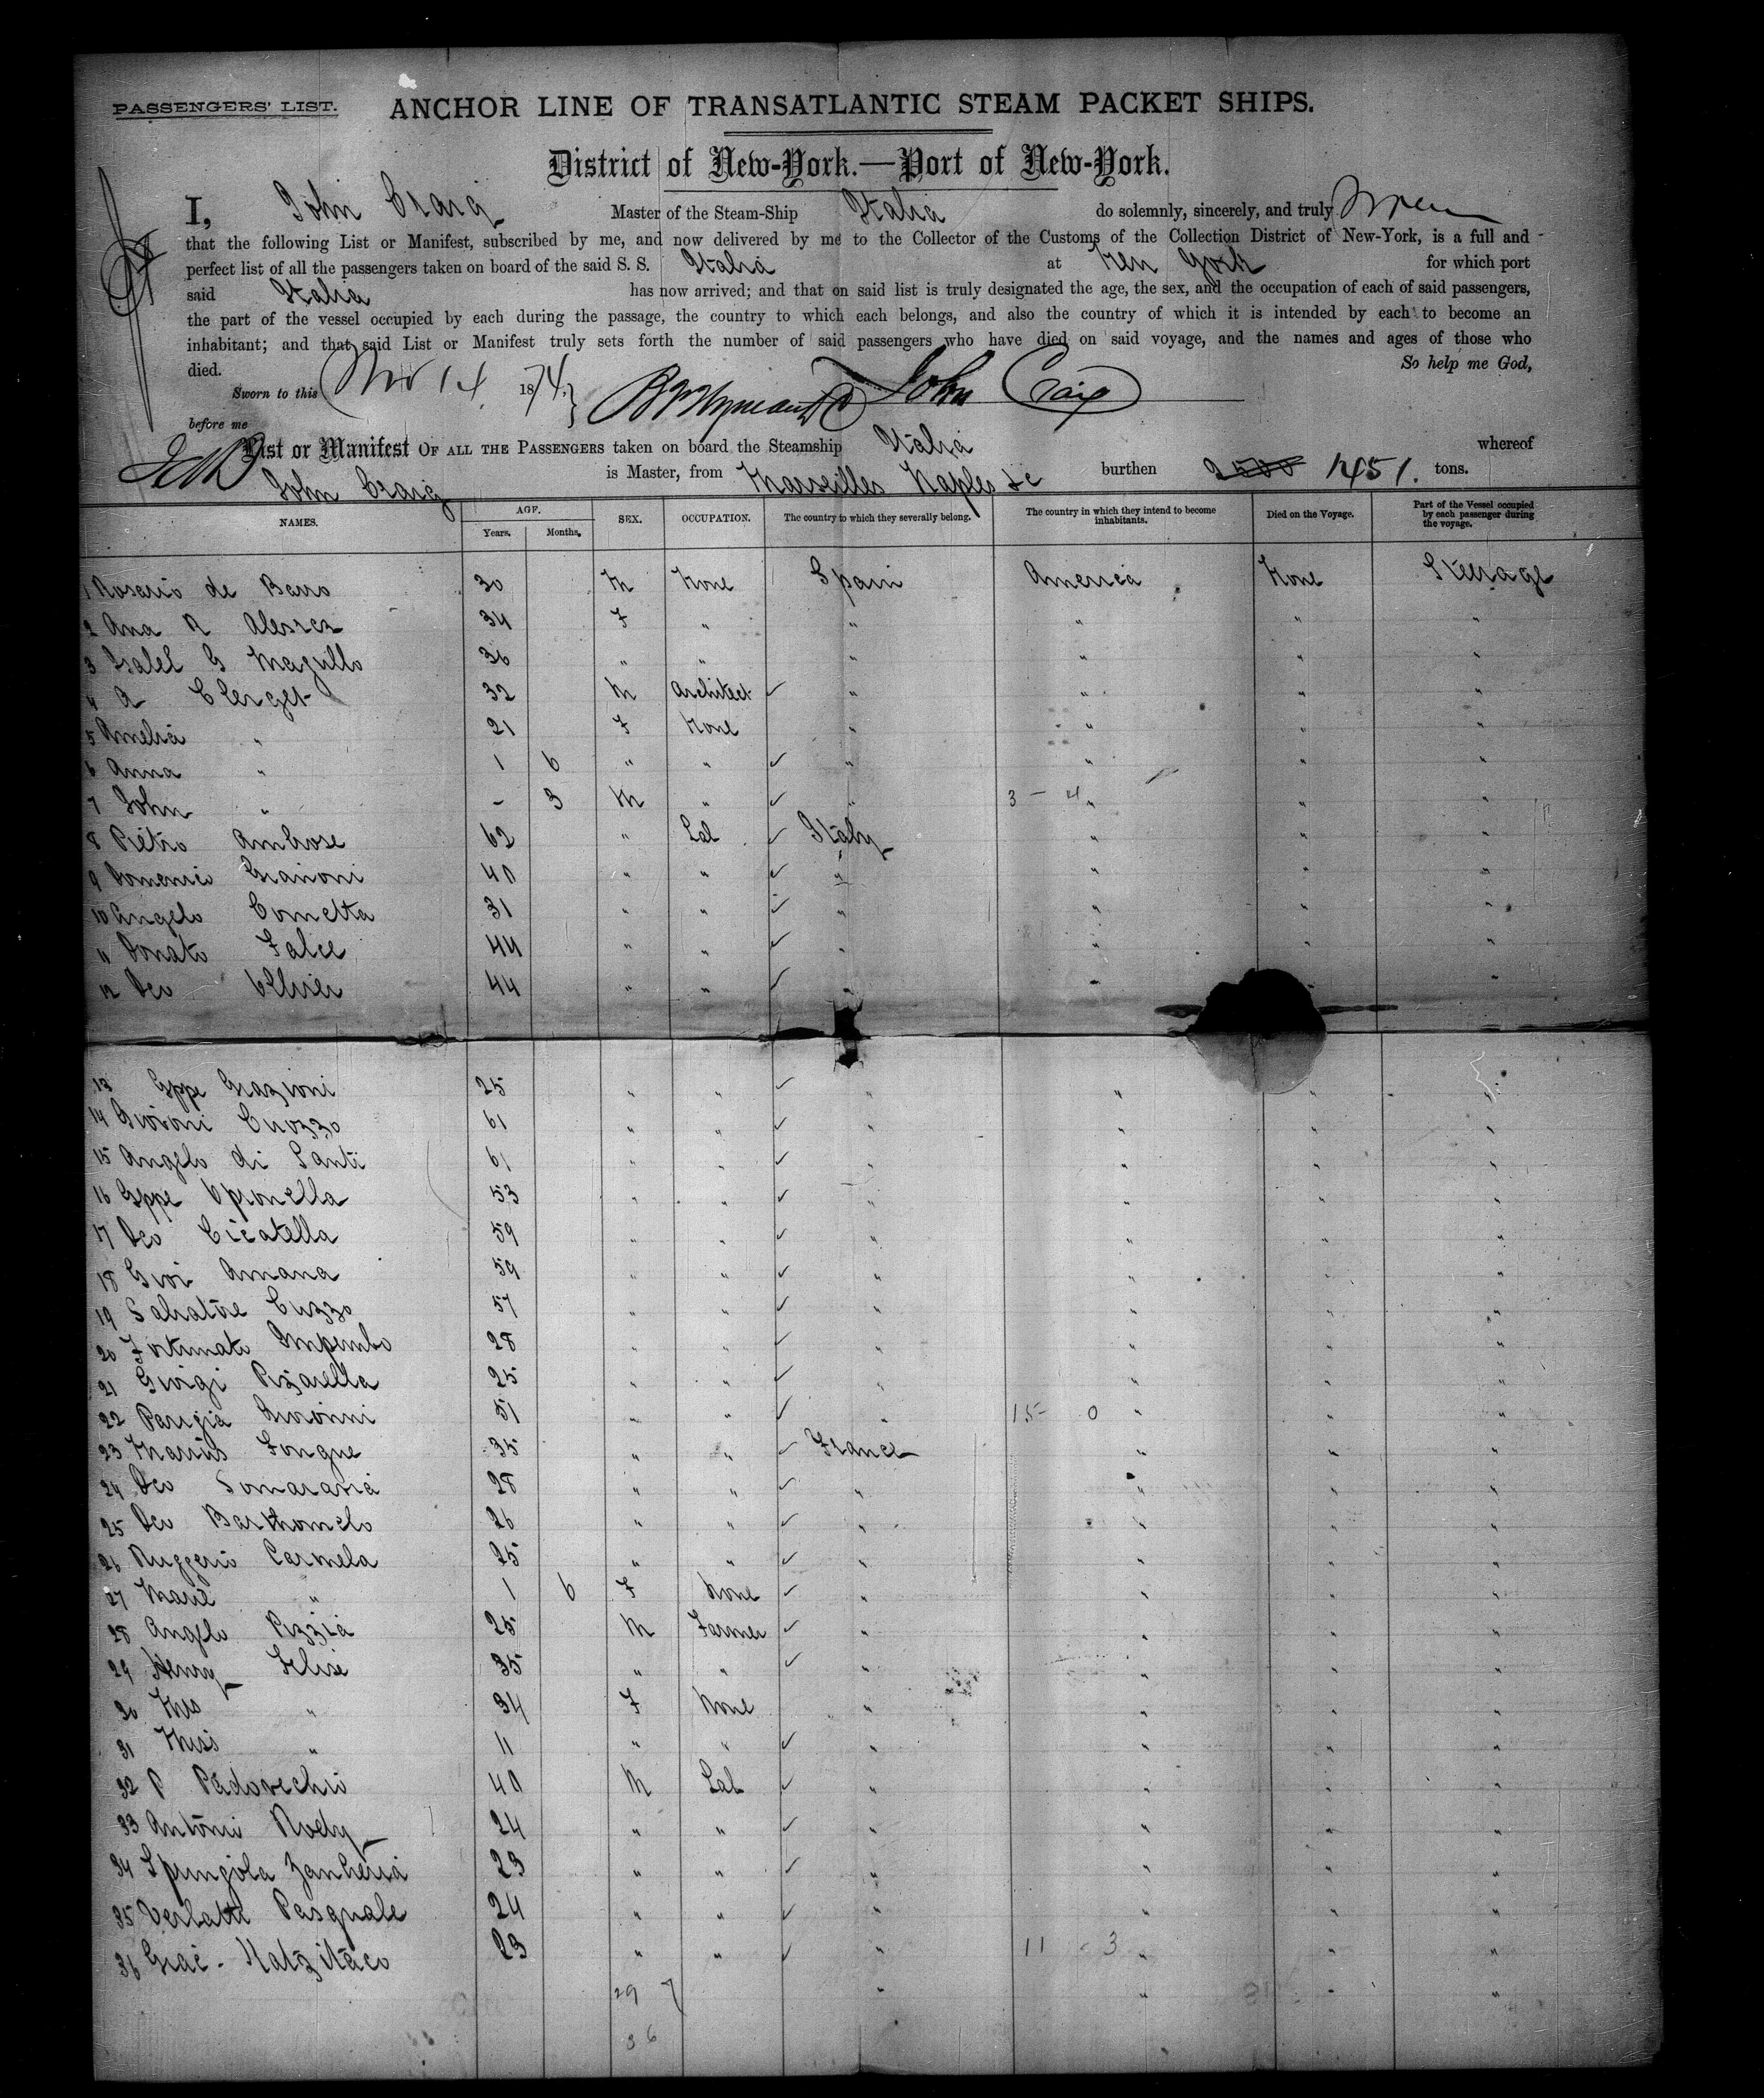 PASSENGERS' LIST. ANCHOR LINE OF TRANSATLANTIC STEAM PACKET SHIPS.
District of New-York.—Port of New-York.
I, John Craig Master of the Steam-Ship Italia do solemnly, sincerely, and truly Swear
that the following List or Manifest, subscribed by me, and now delivered by me to the Collector of the Customs of the Collection District of New-York, is a full and
perfect list of all the passengers taken on board of the said S. S. Italia at New York for which port
said Italia has now arrived; and that on said list is truly designated the age, the sex, and the occupation of each of said passengers,
the part of the vessel occupied by each during the passage, the country to which each belongs, and also the country of which it is intended by each to become an
inhabitant; and that said List or Manifest truly sets forth the number of said passengers who have died on said voyage, and the names and ages of those who
died. So help me God,
Sworn to this Nov 14 1874. John Craig
before me
List or Manifest OF ALL THE PASSENGERS taken on board the Steamship Italia whereof
John Craig is Master, from Marseilles Naples &c burthen 2500 1451. tons.
NAMES. AGE. Years. Months. SEX. OCCUPATION. The country to which they severally belong. The country in which they intend to become inhabitants. Died on the Voyage. Part of the Vessel occupied by each passenger during the voyage.
1 Rosario de Barro 30 M None Spain America None Steerage
2 Ana R 34 F " " " " "
3 Isabel G 36 " " " " " "
4 A Clerget 32 M Architect " " " "
5 Amelia " 21 F None " " " "
6 Anna " 1 6 " " " " " "
7 John " - 3 M " " 3 - 4 " " "
8 Pietro Ambrose 62 " Lab Italy " " "
9 Domenico Granoni 40 " " " " " "
10 Angelo Cometta 31 " " " " " "
11 Donato Falce 44 " " " " " "
12 Dco 44 " " " " " "
13 Gppe Grazioni 25 " " " " " "
14 Giovani Cuozzo 61 " " " " " "
15 Angelo di Santi 61 " " " " " "
16 Gppe Opronella 53 " " " " " "
17 Dco Cicatella 59 " " " " " "
18 Giov Amana 59 " " " " " "
19 Salvatore Cuzzo 57 " " " " " "
20 Fortunato Impembo 28 " " " " " "
21 Giorgi Pizarella 25 " " " " " "
22 Parigia Giovanni 51 " " " 15 - 0 " " "
23 Marius Fongue 35 " " France " " "
24 Dco 28 " " " " " "
25 Dco Barthomelo 26 " " " " " "
26 Ruggerio Carmela 25 " " " " " "
27 Marie " 1 6 F None " " " "
28 Angelo Pizzia 25 M Farmer " " " "
29 Henry Felise 35 " " " " " "
30 Mrs " 34 F None " " " "
31 Miss " 11 " " " " " "
32 P Padovechio 40 M Lab " " " "
33 Antonio Roely 24 " " " " " "
34 Spingola Zanheria 23 " " " " " "
35 Verlatti Pasquale 24 " " " " " "
36 Giac. 23 " " " 11 - 3 " " "
29 7 " " " "
36